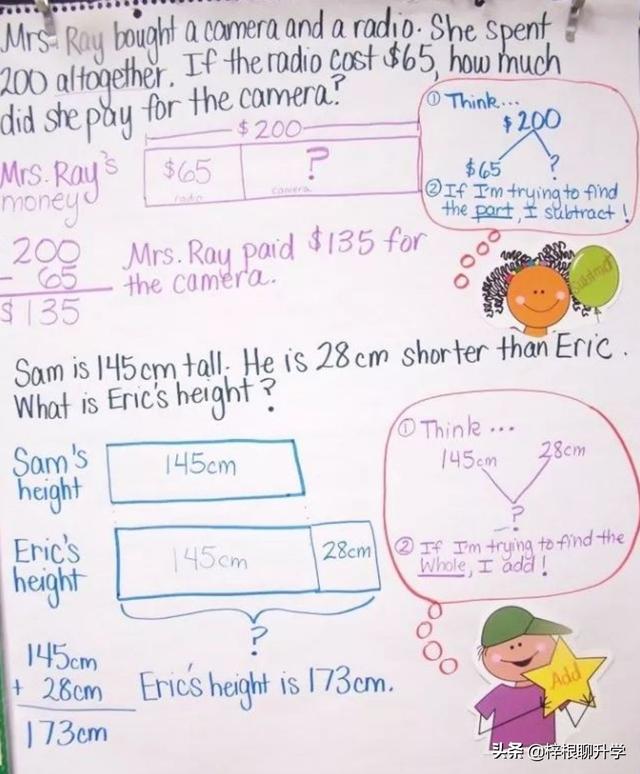 Mrs. Ray bought a camera and a radio. She spent
200 altogether. If the radio cost $65, how much
did she pay for the camera?
① Think...
$200
$65 ?
② If I'm trying to find
the part, I subtract!
$200
Mrs. Ray's
money
$65 ?
radio camera
200
- 65
$135
Mrs. Ray paid $135 for
the camera.
Subtract
Sam is 145cm tall. He is 28cm shorter than Eric.
What is Eric's height?
① Think ...
145cm 28cm
?
② If I'm trying to find the
Whole, I add!
Sam's
height
145cm
Eric's
height
145cm 28cm
?
145cm
+ 28cm
173cm
Eric's height is 173cm.
Add
头条 @梓根聊升学